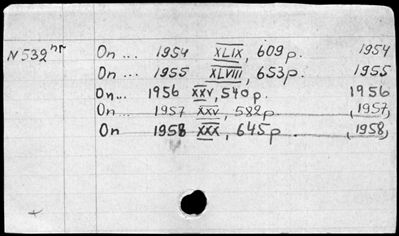 N 532 нг On ... 1954 XLIX, 609 p. 1954
On ... 1955 XLVIII, 653 p. 1955
On ... 1956 XXV, 540 p. 1956
On ... 1957 XXV, 582 p. (1957)
On 1958 XXX, 645 p. (1958)